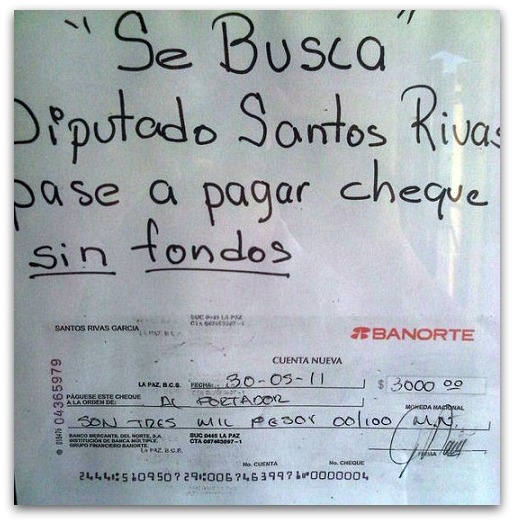 "Se Busca"
Diputado Santos Rivas
pase a pagar cheque
sin fondos
SUC 0445 LA PAZ
SANTOS RIVAS GARCIA
BANORTE
CUENTA NUEVA
LA PAZ, B.C.S. FECHA: 30-05-11 $ 3000 00
PÁGUESE ESTE CHEQUE
A LA ORDEN DE: AL PORTADOR
MONEDA NACIONAL
SON TRES MIL PESOS 00/100 M.N.
BANCO MERCANTIL DEL NORTE, S.A.
INSTITUCIÓN DE BANCA MÚLTIPLE,
GRUPO FINANCIERO BANORTE.
SUC 0445 LA PAZ
LA PAZ B.C.S.
No. CUENTA No. CHEQUE
FIRMA
04365979